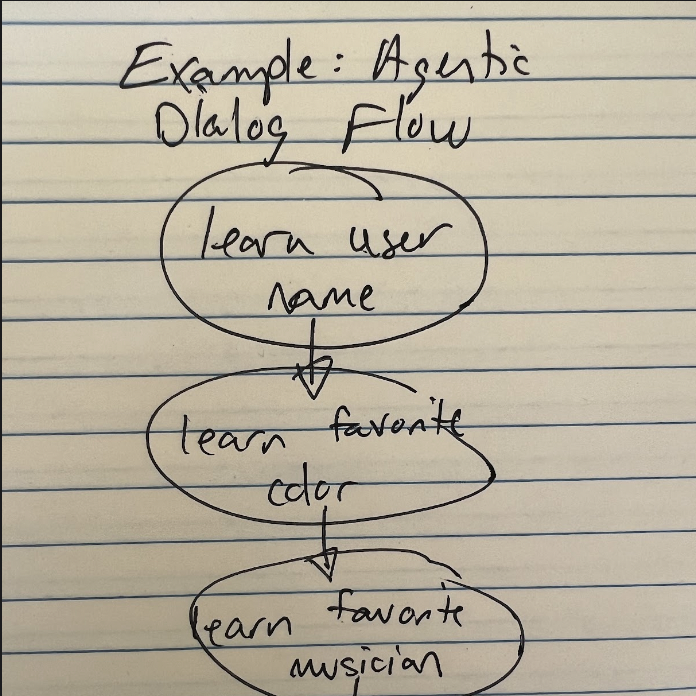 Example: Agentic
Dialog Flow
learn user
name
learn favorite
color
learn favorite
musician